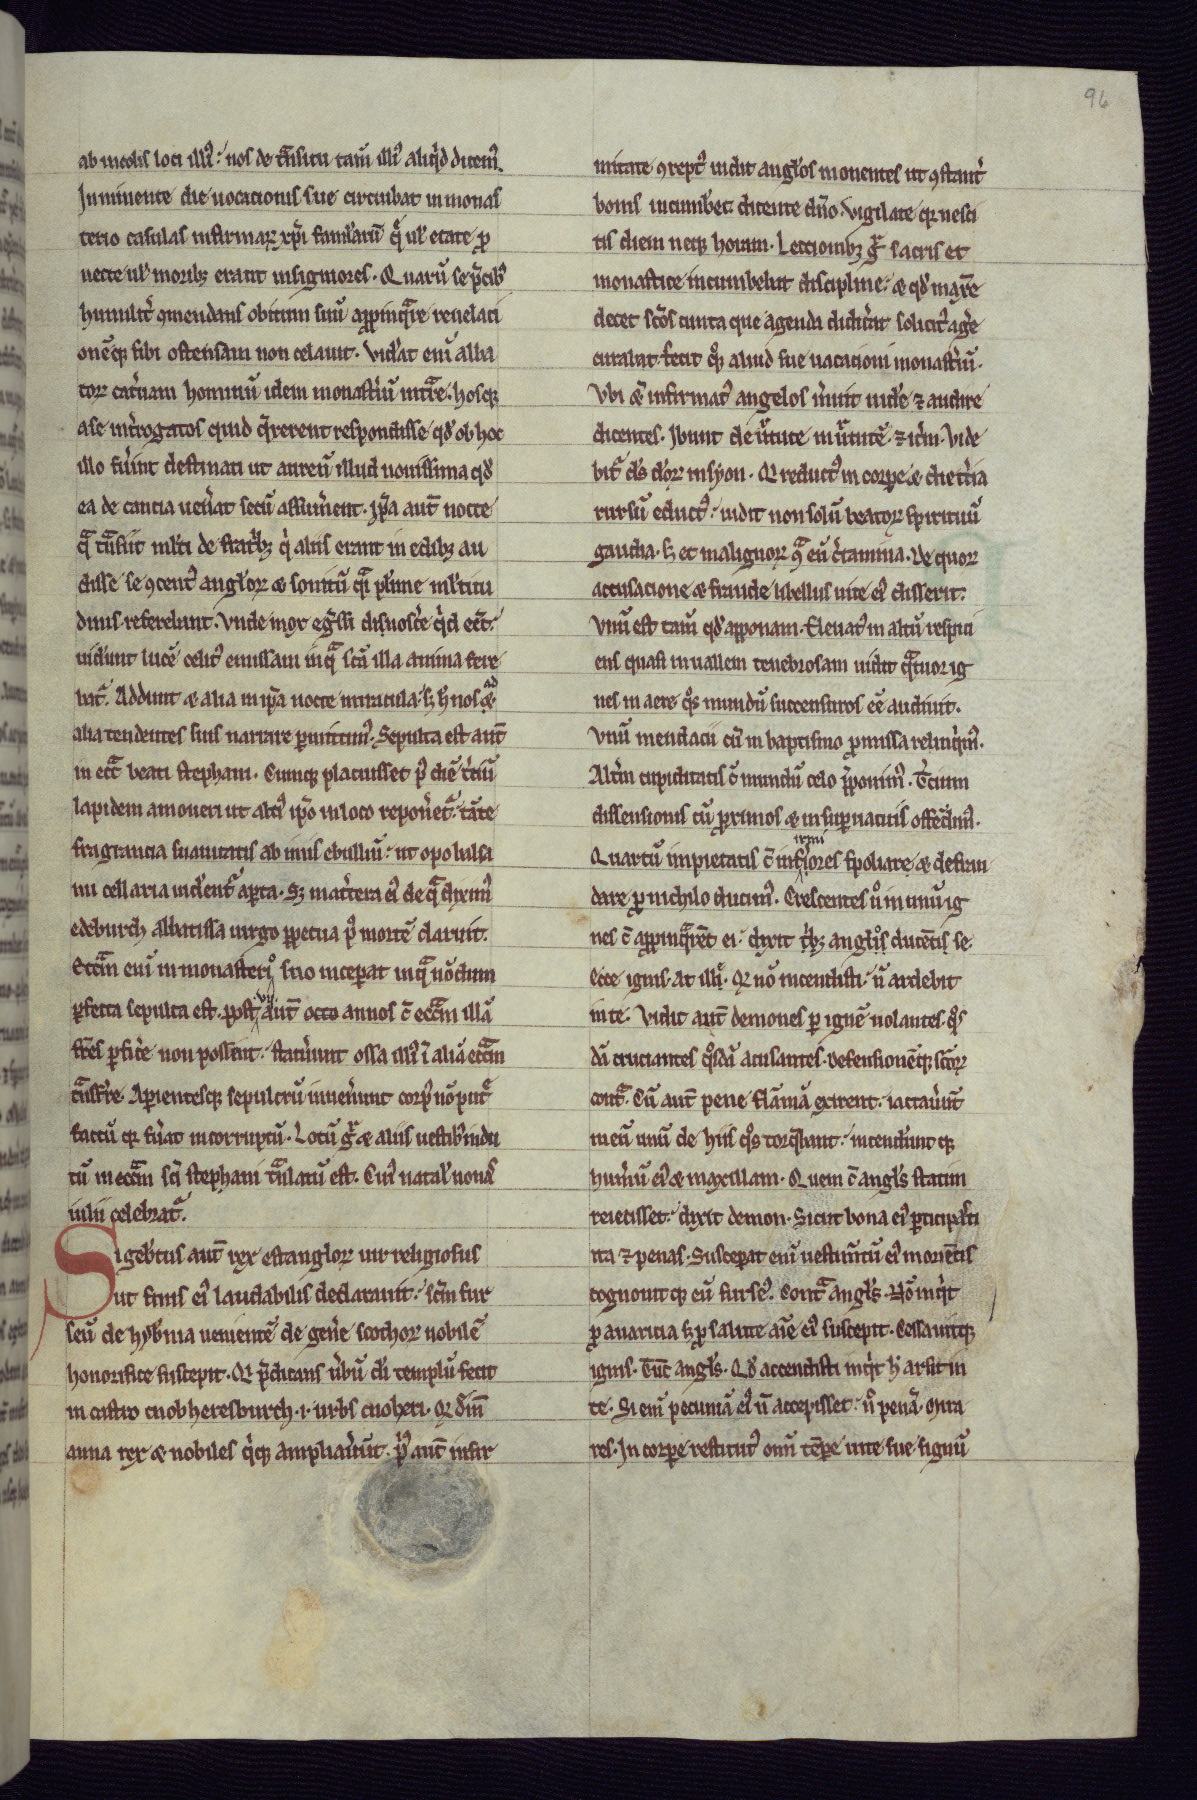 96
ab incolis loci illiꝰ: nos de t͛nsitu tam̄ illiꝰ aliqͥd dicem̃.
Inminente die uocacionis sue circuibat in monas
terio casulas infirmaꝝ xp̄i famularū q̄ ul̛ etate ꝓ
uecte ul̛ moribꝫ erant insigniores. Quarū se p̄cibꝰ
humilit̛ ꝯmendans obitum suū appinq̛re reuelaci
onēqꝫ sibi ostensam non celauit. Vid̛at eni͂ alba
toꝝ cat̛uam hominū idem monast̛iū intr̄e. hosqꝫ
a se int̛rogatos quid q̄rerent respondisse qd̛ ob hoc
illo fưint destinati ut aureū illud nouissima qd̛
ea de cancia uen̛at secū assum̛ent. Ip̄a aut̄ nocte
q̛ t̛nsiit ml̛ti de fratribꝫ q̛ aliis erant in edibꝫ au
disse se ꝯcentꝰ angl̛oꝝ & sonitū q̛i pl̛ime ml̛titu
dinis referebant. Vnde mox eg̛ssi dinosc̛e q̛d eēt:
uid̛unt lucē celitꝰ emissam in q̛ sc̄a illa anima fere
bat̛. Addunt & alia in ip̄a nocte miracula. s̛ h̛ nos ad
alia tendentes suis narrare p̱mittimꝰ. Sepulta est aut̄
in eccl̛a beati stephani. Cumqꝫ placuisset pꝰ diē t̛ciū
lapidem amoueri ut alciꝰ ip̄o in loco repon̛et̛: tāte
fragrancia suauitatis ab imis ebulliuit: ut opobalsa
mi cellaria uid̛ent̛ ap̱ta. Sꝫ mat̛tera eiꝰ de q̛ diximꝰ
edeburch abbatissa uirgo ꝑpetua pꝰ mortē claruit.
Eccl̛am eni͂ in monasterio suo incep̱at in q̛ nōdum
p̱fecta sepulta est. post uii aut̄ octo annos c̄ eccl̛am illā
fr̄es p̱fic̛e non possent: statưunt ossa illiꝰ ī aliā eccl̛am
t̛nsfr̄e. Ap̱ientesqꝫ sepulcrū inuen̛unt corpꝰ nō put̛
factū qꝫ fưat incorruptū. Lotū g̛ & aliis uestibꝰ indu
tū in eccl̛am sc̄i stephani t̛nslatū est. Cuiꝰ natal̛ nonas
iulii celebrat̛.
Sigeb̛tus aut̄ rex estangloꝝ uir religiosus
ut finis eiꝰ laudabilis declarauit: sc̄m fur
seū de hyb̛nia uenientē de gen̛e scothoꝝ nobilē
honorifice suscepit. Qi p̄dicans ưbū di͂ templū fecit
in castro cnobheresburch .i. urbs cnoberi. Qd̛ dein̄
anna rex & nobiles q̛qꝫ ampliaưunt. p̛ꝰ aut̄ infir
mitate ꝯreptꝰ uidit angl̛os monentes ut ꝯstant̛
bonis incumb̛et dicente dn̄o. Vigilate qꝫ nesci
tis diem neqꝫ horam. Lectionibꝫ g̛ sacris et
monastice incumbebat discipline: & qd̛ max̄e
decet sc̄os cuncta que agenda didic̛at solicitꝰ ag̛e
curabat. fecit q̛s aliud sue uacacioni monast̛iū.
Vbi & infirmatꝰ angelos m̛uit uid̛e ⁊ audire
dicentes. Ibunt de ưtute in ưtutē. ⁊ it̛m. Vide
bit̛ ds̄ d̛oꝝ in syon. Qi reductꝰ in corpe & die t̛cia
rursū eductꝰ: uidit non solū beatoꝝ spirituū
gaudia. s̛ et malignoꝝ ꝯ̛ eū c̛tamina. De quoꝝ
accusacione & fraude libellus uite eiꝰ disserit:
Vnū est tam̄ qd̛ apponam. Eleuatꝰ in altū respici
ens quasi in uallem tenebrosam uidit q̛tuor ig
nes in aere q̛s mundū succensuros eē audiuit.
Vnū mendacii cū in baptismo ꝓmissa relinq̛mꝰ.
Alt̛m cupiditatis c̄ mundū celo p̄ponimꝰ. T̛cium
dissensionis cū ꝓximos & in sup̱uacuis offēdimꝰ.
Quartū impietatis c̄ infirmiores spoliare & defrau
dare ꝓ nichilo ducimꝰ. Crescentes ư in unū ig
nes c̄ appinq̛rēt ei: dixit t̛bꝫ angl̛is ducētis se
Ecce ignis. at illi. Qd̛ nō incendisti: n̄ ardebit
in te. Vidit aut̄ demones p̱ ignē uolantes q̛s
dā cruciantes q̛sdā acusantes. defensionēqꝫ sc̄oꝝ
cont̛. Cū aut̄ pene flāmā exirent: iactaưunt
in eū unū de hiis q̛s torq̛bant: incend̛unt qꝫ
hum̛ū eiꝰ & maxillam. Quem c̄ angl̛s statim
reiecisset: dixit demon. Sicut bona eiꝰ p̱ticipasti
ita ⁊ penas. Suscep̱at eni͂ uestim̄tū eiꝰ morientis
cognouit qꝫ eū furseꝰ. Cont̛ angl̛s. Nō inq̛t
ꝓ auaricia s̛ ꝓ salute aīe eiꝰ suscepit. Cessauitqꝫ
ignis. Tūc angl̛s. Qd̛ accendisti inq̛t h̛ arsit in
te. Si eni͂ pecuniā eiꝰ n̄ accepisset: n̛ penā intra
res. In corpe restitutꝰ omi͂ tēpe uite sue signū